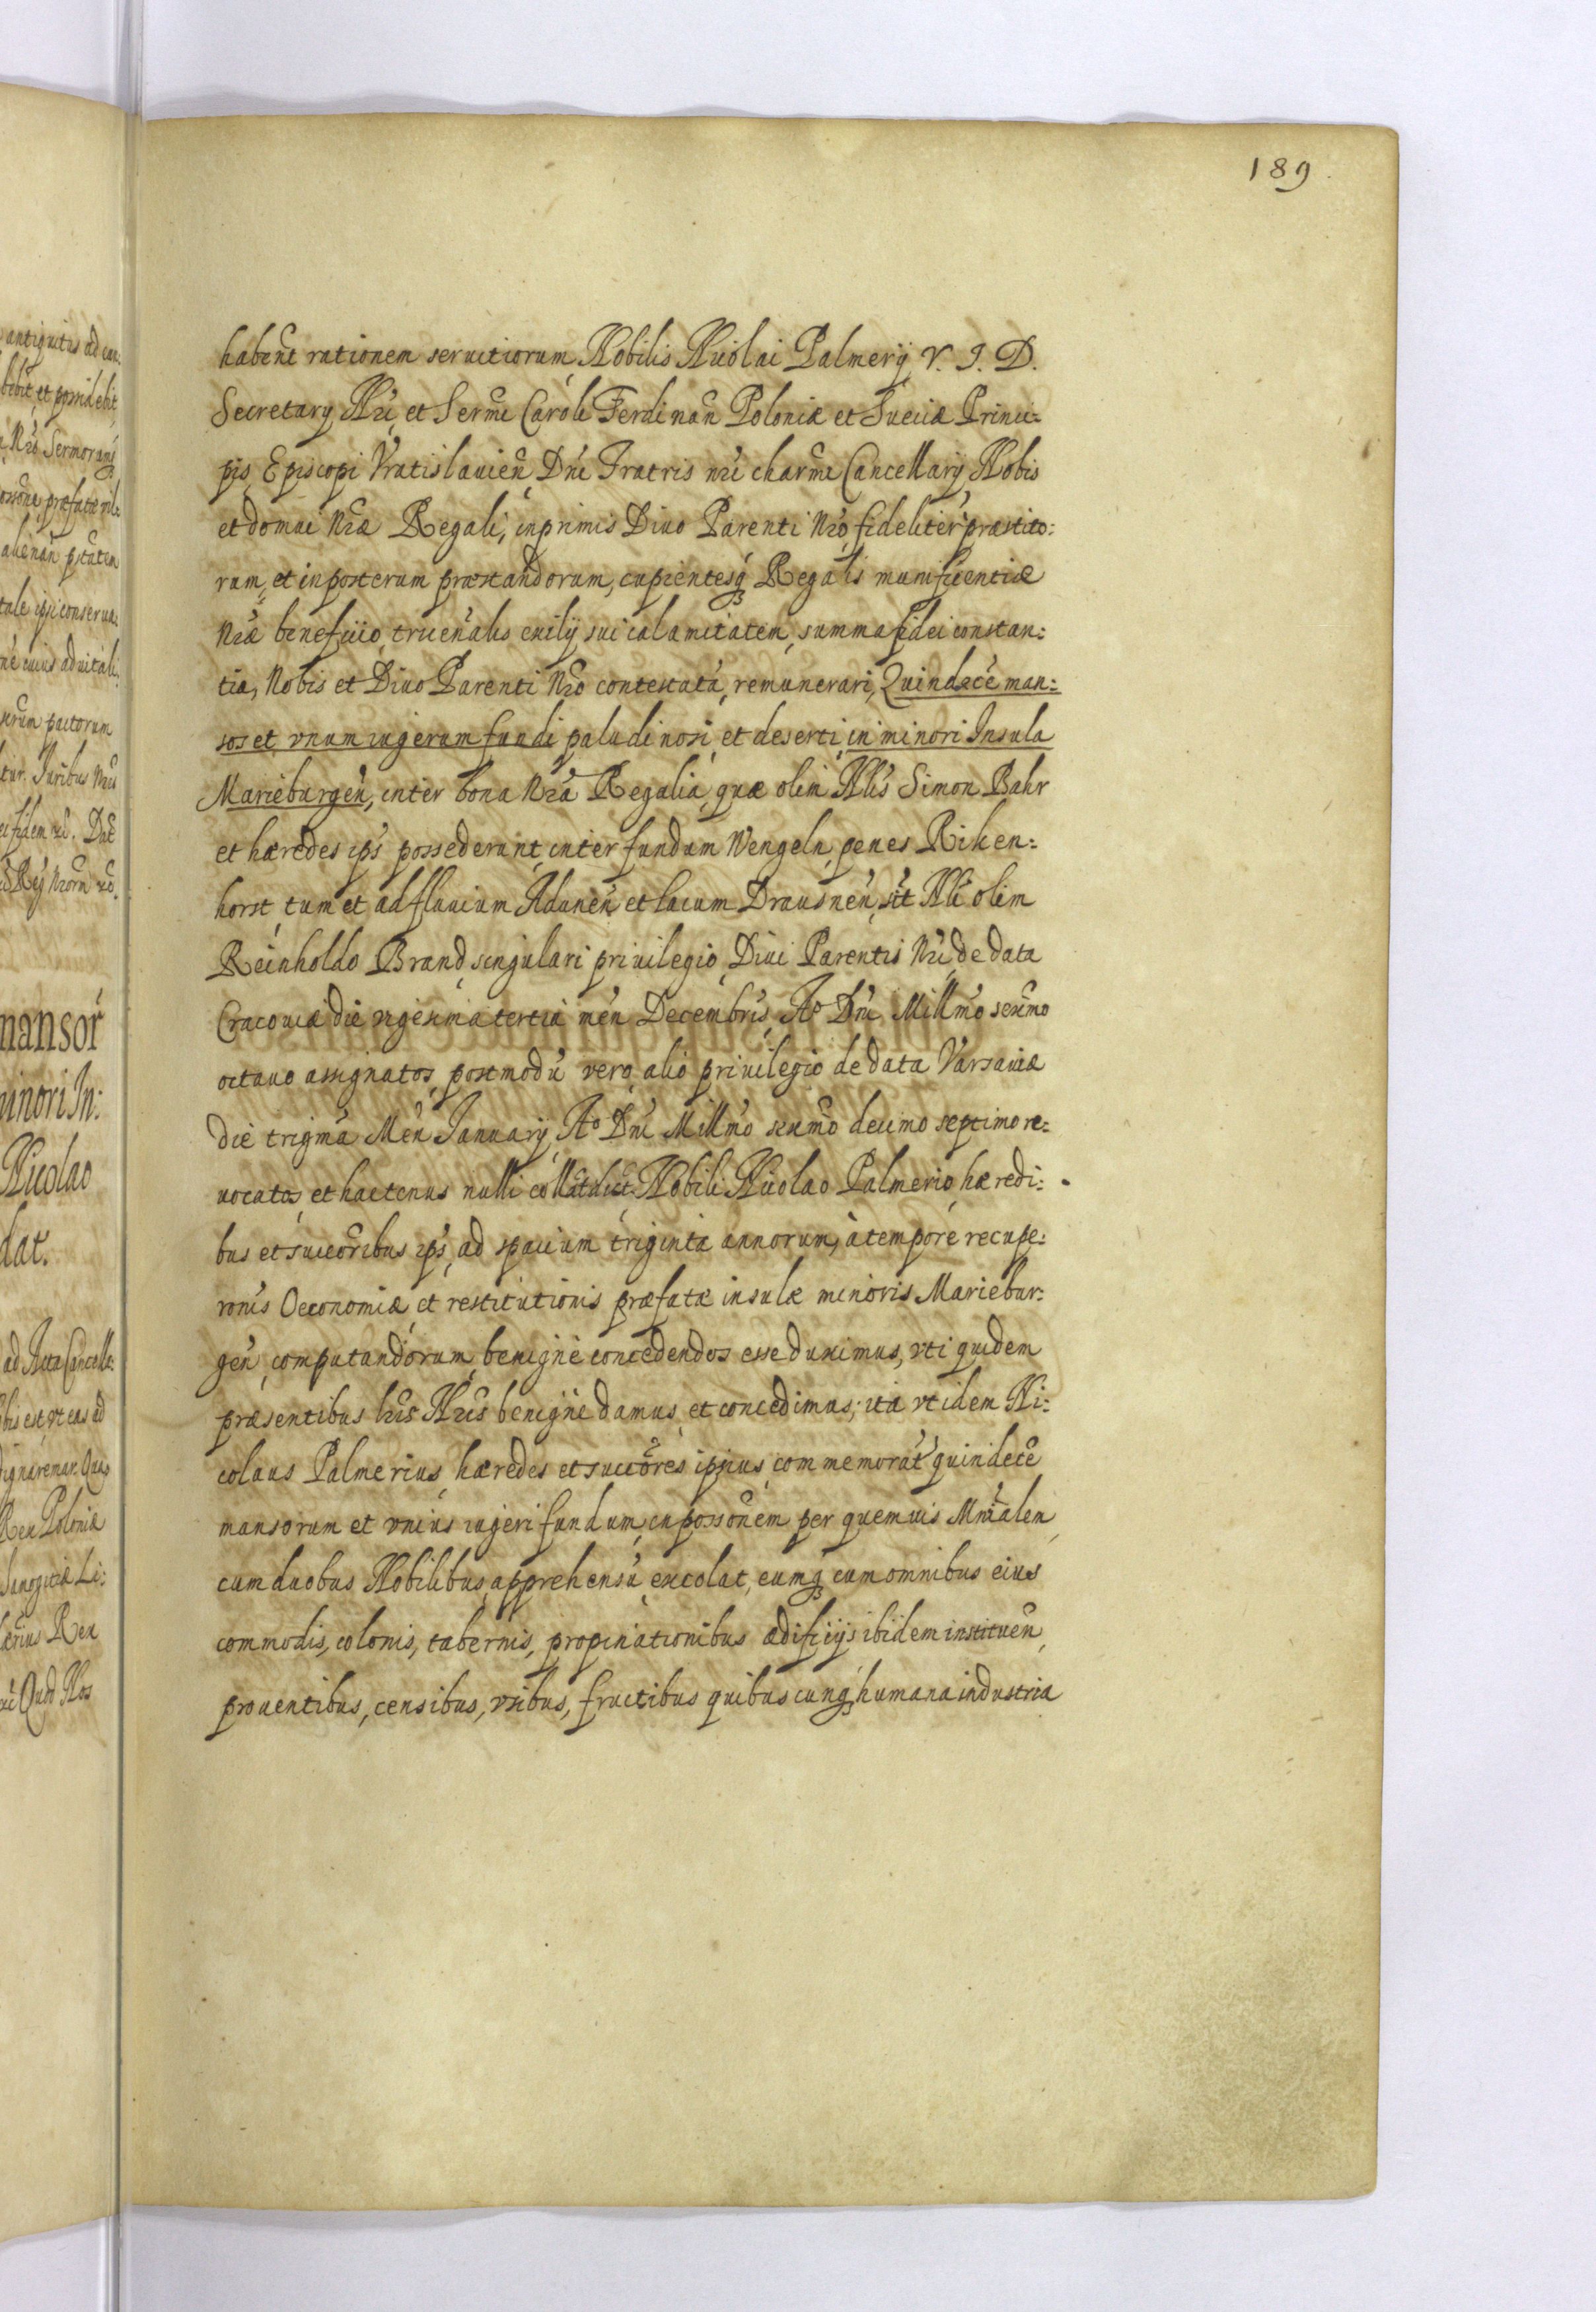 189.
habent rationem seruitiorum Nobilis Nicolai Palmerÿ V. I. D.
Secretarÿ Nri, et Sermi Caroli Ferdinan Poloniæ et Sueciæ Princi:
pis Episcopi Vratislauien Dni Fratris nri charmi Cancellarÿ Nobis
et domui Nræ Regali, inprimis Diuo Parenti Nro, fideliter præstito:
rum, et inposterum præstandorum, cupientesq Regalis munificentiæ
Nræ beneficio, tricenalis exilÿ sui calamitatem, summa fidei constan:
tia, Nobis et Diuo Parenti Nro contestatà, remunerari, Quindecē man:
sos et vnum iugerum fundi paludinosi, et deserti, in minori Insula
Marieburgen, inter bona Nra Regalia, quæ olim Nlis Simon Bahr
et hæredes ips possederunt, inter fundum Wengeln, penes Riken:
horst, tum et ad fluuium Adunen, et lacum Drausnen, sit Nli olim
Reinholdo Brand, singulari priuilegio, Diui Parentis Nri, de data
Cracouiæ die vigesima tertia men Decembris, Aº Dni Millmo sexmo
octauo assignatos, postmodū vero, alio priuilegio de data Varsauiæ
die trigma Men Januarÿ, Aº Dni Millmo sexmo decimo septimo re:
uocatos, et hactenus nulli collat, dict Nobili Nicolao Palmerio, hæredi:
bus et succoribus ips, ad spacium triginta annorum, à tempore recupe:
ronis Oeconomiæ, et restitutionis præfatæ insulæ minoris Mariebur:
gen, computandorum, benignè concedendos esse duximus, vti quidem
præsentibus lris Nris benignè damus, et concedimus; ita vt idem Ni:
colaus Palmerius, hæredes et succores ipsius, commemorat quindecē
mansorum et vnius iugeri fundum, in possonem per quemuis Mnialem
cum duobus Nobilibus, apprehensū, excolat, eumq cum omnibus eius
commodis, colonis, tabernis, propinationibus ædificÿs ibidem instituen,
prouentibus, censibus, vsibus, fructibus quibuscunq humana industria